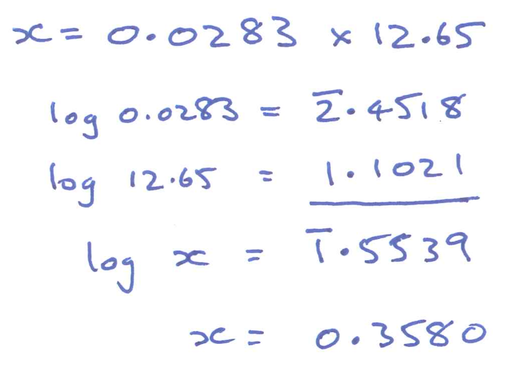 x = 0.0283 × 12.65
log 0.0283 = 2̅.4518
log 12.65 = 1.1021
log x = 1̅.5539
x = 0.3580